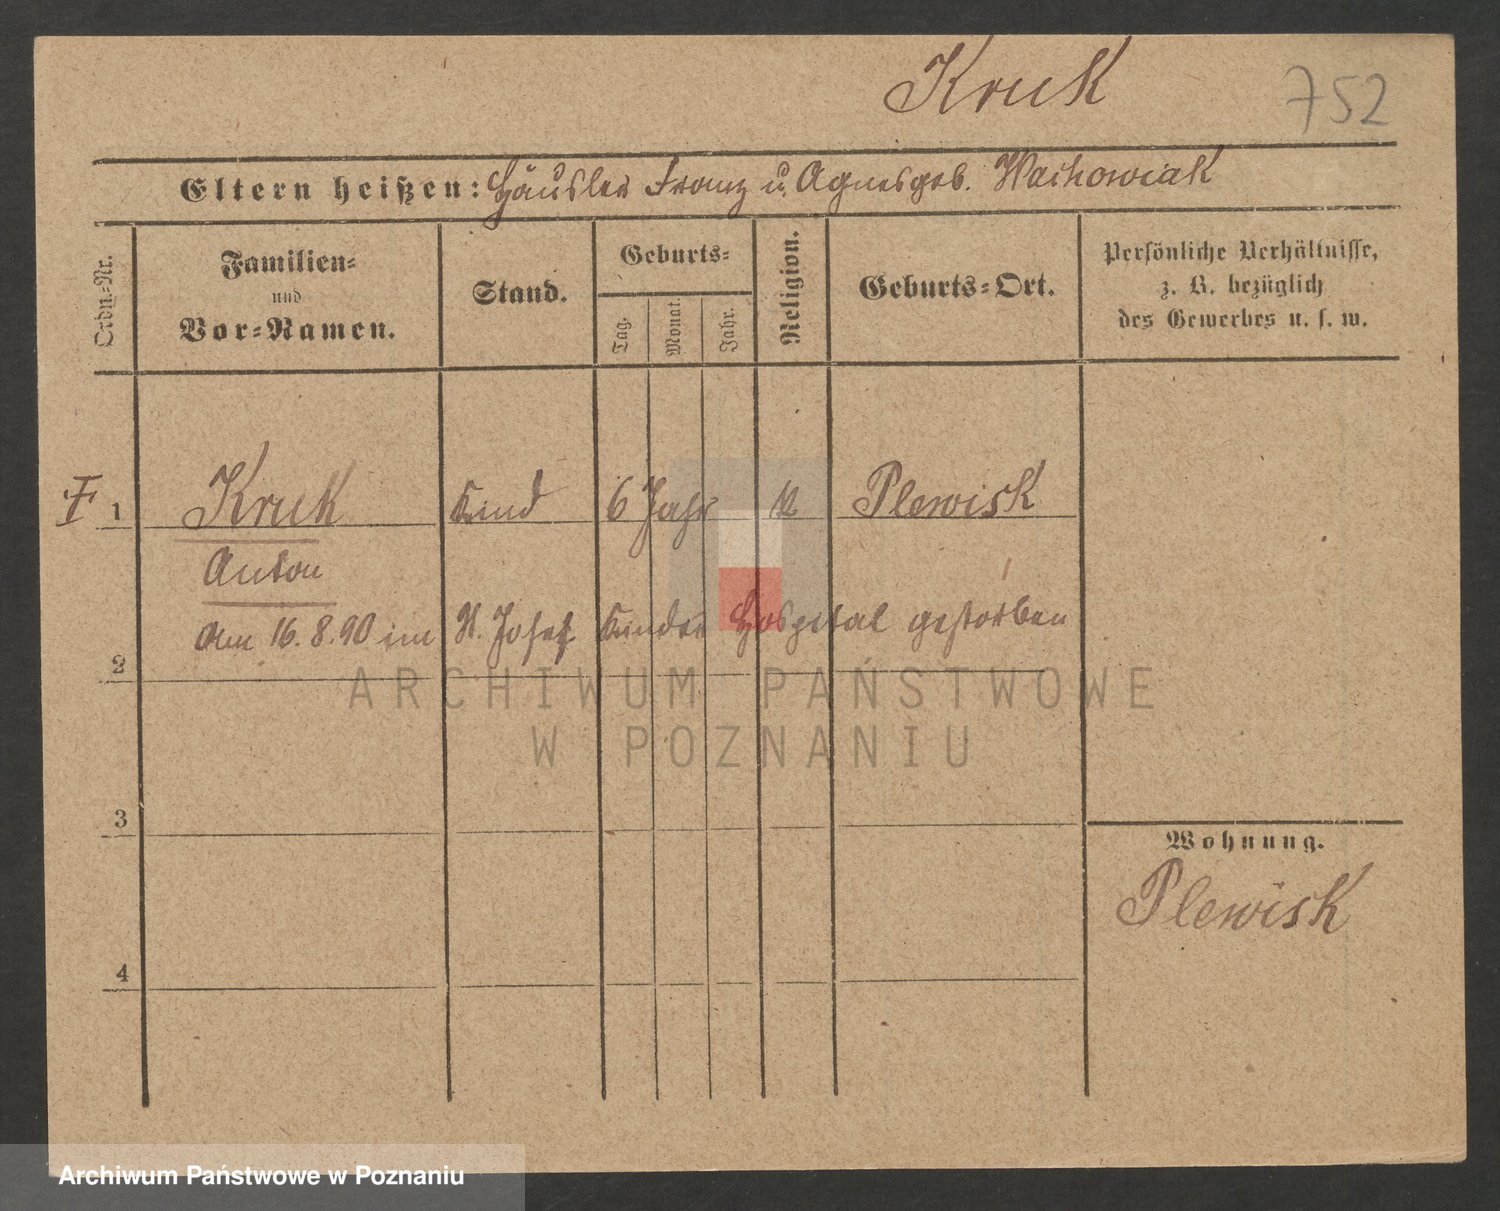 Kruk
752
Eltern heißen: Häusler Franz u. Agnes geb. Wachowiak
Ordn.-Nr.
Familien-
und
Vor-Namen.
Stand.
Geburts-
Tag.
Monat.
Jahr.
Religion.
Geburts-Ort.
Persönliche Verhältnisse,
z. B. bezüglich
des Gewerbes u. s. w.
1 Kruk Kind 6 Jahr k Plewisk
Anton
am 16.8.90 im St. Josef Kinder Hospital gestorben
2
ARCHIWUM PAŃSTWOWE
W POZNANIU
3
Wohnung.
Plewisk
4
Archiwum Państwowe w Poznaniu